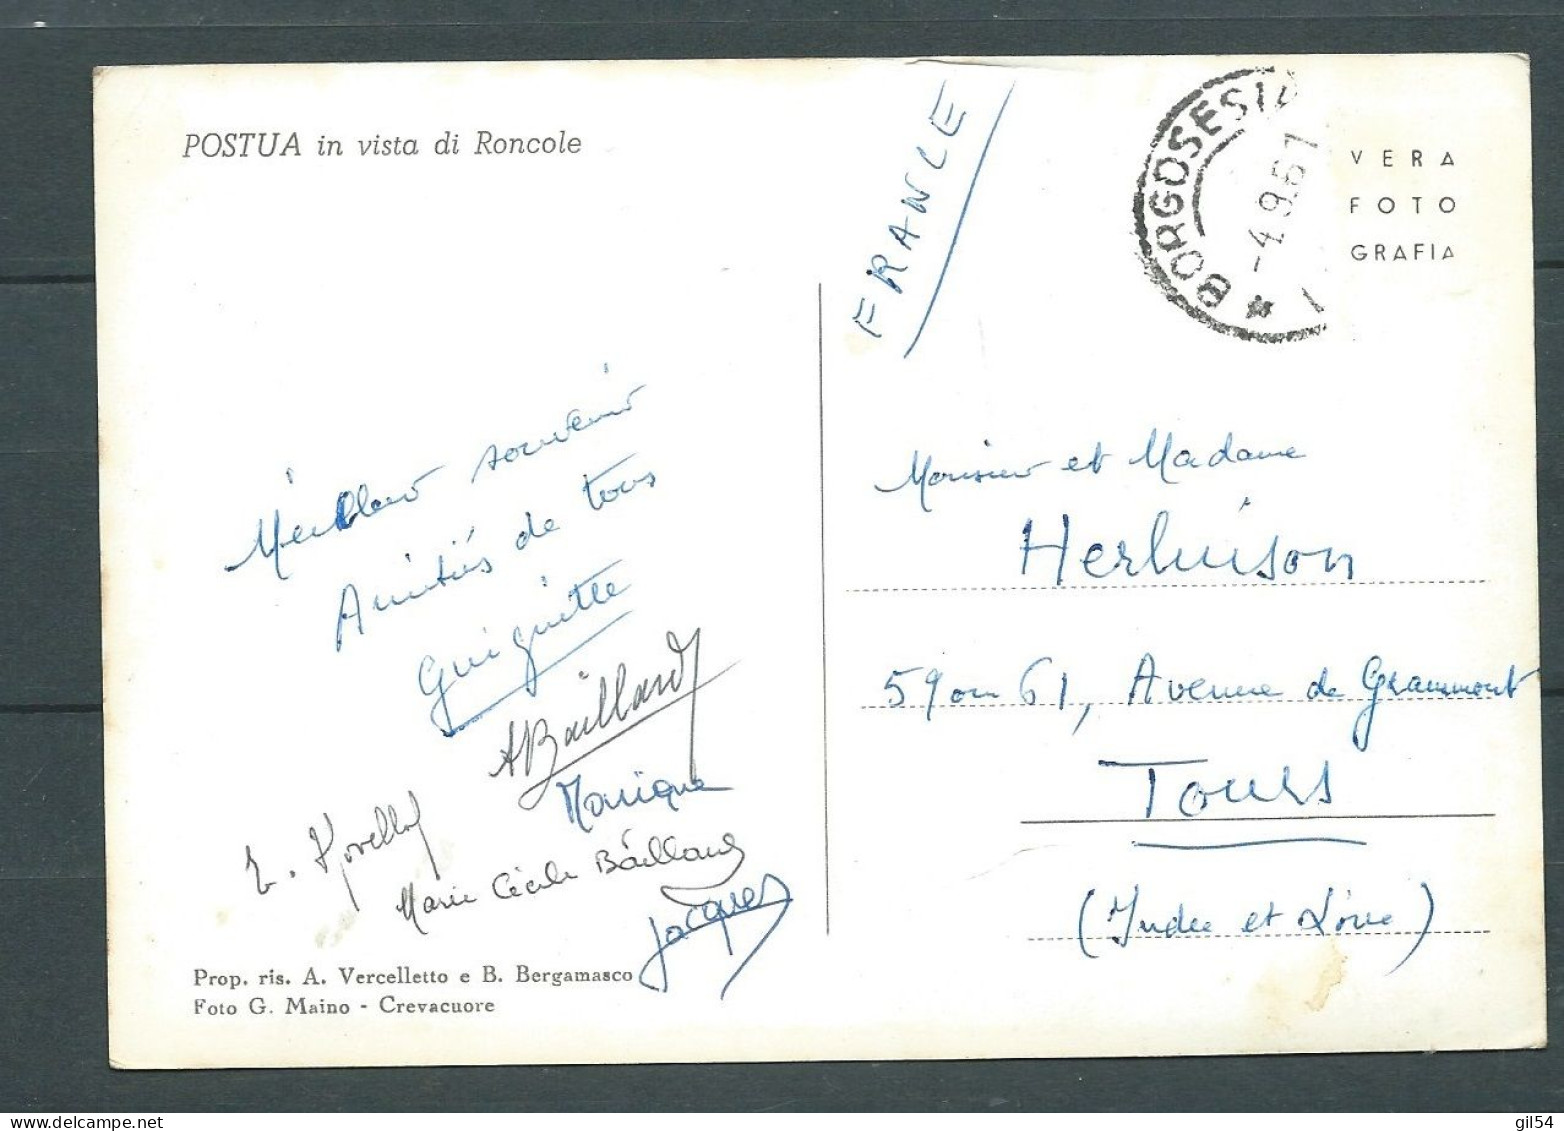 POSTUA in vista di Roncole
FRANCE
BORGOSESIA
-4.9.61
VERA
FOTO
GRAFIA
Meilleur souvenir
Amitiés de tous
Guiguitte
ABaillard
Monique
Marie Cécile Baillard
Jacques
Prop. ris. A. Vercelletto e B. Bergamasco
Foto G. Maino - Crevacuore
Monsieur et Madame
Herluison
59 ou 61, Avenue de Grammont
Tours
(Indre et Loire)
gil54